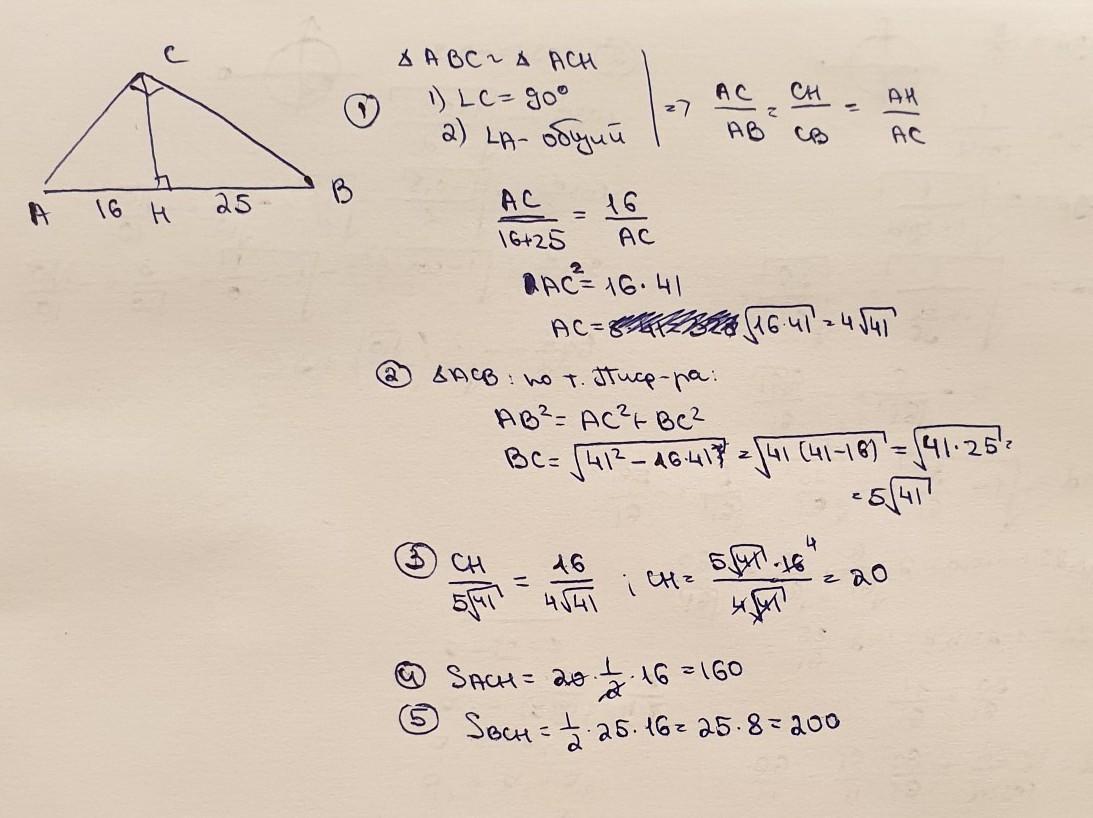 C
A 16 H 25 B
① △ABC ~ △ACH
1) ∠C = 90°
2) ∠A - общий
=> AC/AB = CH/CB = AH/AC
AC/(16+25) = 16/AC
AC² = 16·41
AC = √(16·41) = 4√41
② △ACB: по т. Пиф-ра:
AB² = AC² + BC²
BC = √(41² - 16·41) = √(41(41-16)) = √(41·25) =
= 5√41
③ CH/(5√41) = 16/(4√41) ; CH = (5√41·16 4)/(4√41) = 20
④ SACH = 20·1/2·16 = 160
⑤ SBCH = 1/2·25·16 = 25·8 = 200